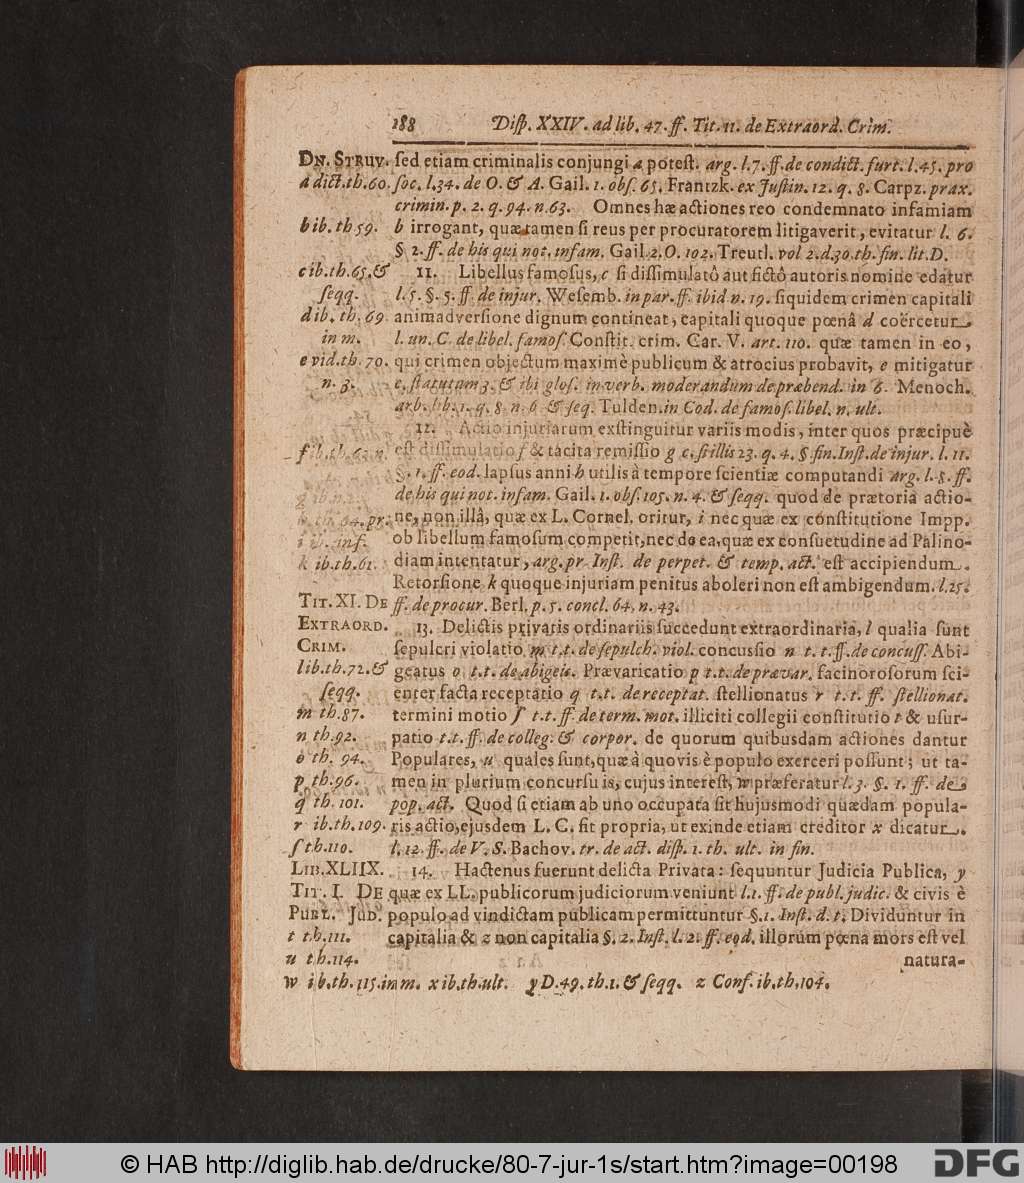 188 Disp. XXIV. ad lib. 47. ff. Tit. 11. de Extraord. Crim.
DN. STRUV. sed etiam criminalis conjungi a potest. arg. l. 7. ff. de condict. furt. l. 45. pro
a dict. th. 60. soc. l. 34. de O. & A. Gail. 1. obs. 65. Frantzk. ex Justin. 12. q. 8. Carpz. prax.
crimin. p. 2. q. 94. n. 63. Omnes hæ actiones reo condemnato infamiam
b ib. th 59. b irrogant, quæ tamen si reus per procuratorem litigaverit, evitatur l. 6.
§ 2. ff. de his qui not. infam. Gail 2. O. 102. Treutl. vol 2. d. 30. th. fin. lit. D.
c ib. th. 65. & 11. Libellus famosus, c si dissimulatô aut fictô autoris nomine edatur
seqq. l. 5. §. 5. ff. de injur. Wesemb. in par. ff. ibid n. 19. siquidem crimen capitali
d ib. th. 69 animadversione dignum contineat, capitali quoque pœnâ d coërcetur.
in m. l. un. C. de libel. famos. Constit. crim. Car. V. art. 110. quæ tamen in eo,
e vid. th. 70. qui crimen objectum maximè publicum & atrocius probavit, e mitigatur
n. 3. c. statutum 3. & ibi glos. in verb. moderandum de præbend. in 6. Menoch.
arb. lib. 1. q. 8 n. 6 & seq. Tulden. in Cod. de famos. libel. n. ult.
12. Actio injuriarum exstinguitur variis modis, inter quos præcipuè
f ib. th. 63. n. est dissimulatio f & tacita remissio g c. si illis 23. q. 4. § fin. Inst. de injur. l. 11.
§. 1. ff. eod. lapsus anni h utilis à tempore scientiæ computandi arg. l. 5. ff.
g ib. n. 2. de his qui not. infam. Gail. 1. obs. 105. n. 4. & seqq. quod de prætoria actio-
h th. 64. pr. ne, non illâ, quæ ex L. Cornel. oritur, i nec quæ ex constitutione Impp.
i ib. inf. ob libellum famosum competit, nec de ea, quæ ex consuetudine ad Palino-
k ib. th. 61. diam intentatur, arg. pr. Inst. de perpet. & temp. act. est accipiendum.
Retorsione k quoque injuriam penitus aboleri non est ambigendum. l. 25.
TIT. XI. DE ff. de procur. Berl. p. 5. concl. 64. n. 43.
EXTRAORD. 13. Delictis privatis ordinariis succedunt extraordinaria, l qualia sunt
CRIM. sepulcri violatio m t. t. de sepulch. viol. concussio n t. t. ff. de concuss. Abi-
l ib. th. 72. & geatus o t. t. de abigeis. Prævaricatio p t. t. de prævar. facinorosorum sci-
seqq. enter facta receptatio q t. t. de receptat. stellionatus r t. t. ff. stellionat.
m th. 87. termini motio s t. t. ff. de term. mot. illiciti collegii constitutio t & usur-
n th. 92. patio t. t. ff. de colleg. & corpor. de quorum quibusdam actiones dantur
o th. 94. Populares, u quales sunt, quæ à quovis è populo exerceri possunt; ut ta-
p th. 96. men in plurium concursu is, cujus interest, w præferatur l. 3. §. 1. ff. de
q th. 101. pop. act. Quod si etiam ab uno occupata sit hujusmodi quædam popula-
r ib. th. 109. ris actio, ejusdem L. C. fit propria, ut exinde etiam creditor x dicatur.
s th. 110. l. 12. ff. de V. S. Bachov. tr. de act. disp. 1. th. ult. in fin.
LIB. XLIIX. 14. Hactenus fuerunt delicta Privata: sequuntur Judicia Publica, y
TIT. I. DE quæ ex LL. publicorum judiciorum veniunt l. 1. ff. de publ. judic. & civis è
PUBL. JUD. populo ad vindictam publicam permittuntur §. 1. Inst. d. t. Dividuntur in
t th. 111. capitalia & z non capitalia §. 2. Inst. l. 2. ff. eod. illorum pœna mors est vel
u th. 114. natura-
w ib. th. 115. in m. x ib. th. ult. y D. 49. th. 1. & seqq. z Conf. ib. th. 104.
© HAB http://diglib.hab.de/drucke/80-7-jur-1s/start.htm?image=00198 DFG